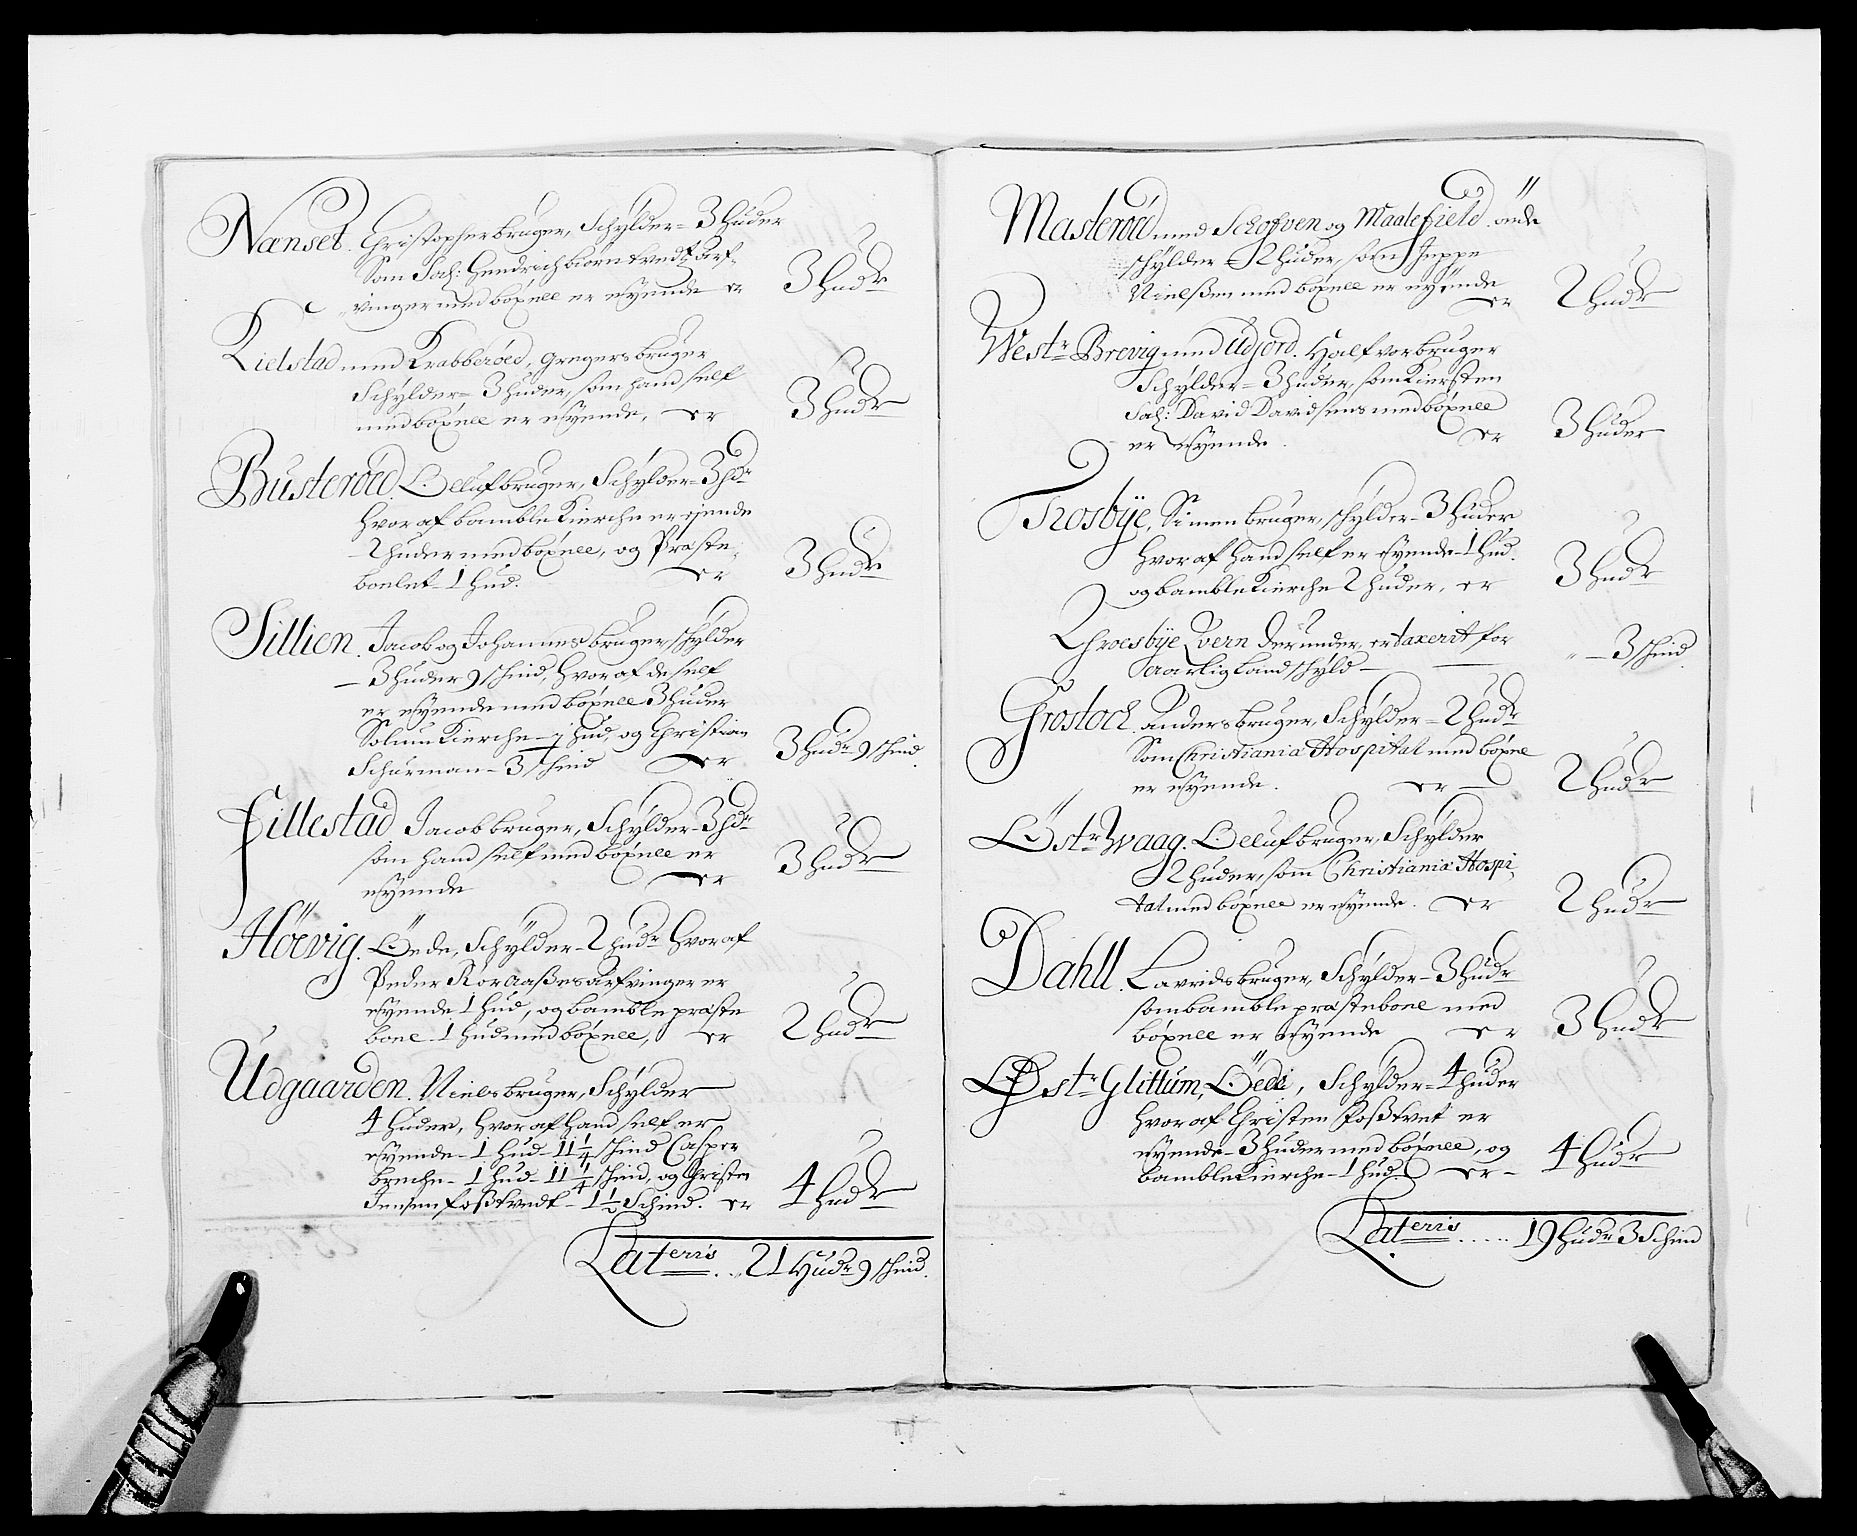 Nænset. Christopher bruger, Schylder = 3 huder
Som Sal: Hendrich biørntvedtz Arf-
vinger med böxell er eÿende er 3 hudr
Kielstad med Krabberöed, Gregers bruger
Schylder = 3 huder, som hand self
med böxell er eÿende, er 3 hudr
Busteröed. Olluf bruger, Schylder = 3 hdr
hvor af bamble Kierche er ejende
2 huder med böxell, og Præste,
bolet 1 hud. er 3 hudr
Tillien. Jacob og Johannes bruger, schylder
3 huder 9 schind, hvor af de self
er eÿende med böxell 3 huder
Solum Kierche - ½ hud, og Christian
Schürman - 3 schind er 3 hudr 9 schind.
Fillestad Jacob bruger, Schylder - 3 hdr
som hand self med böxell er
eÿende er 3 hudr
Höevig. Öede, Schÿlder - 2 hudr hvor af
Peder Roraaßes arfvinger er
eÿende 1 hud, og bamble præste
boel 1 hud med böxell, er 2 hudr
Udgaarden. Niels bruger, Schÿlder
4 huder, hvor af hand self er
eÿende - 1 hud - 11 ¼ schind Casper
breche - 1 hud - 11 ¼ schind, og Christen
Jensen foßtvedt - 1 ½ Schind. er 4 hudr
Lateris . . 21 Hudr 9 schind.
Masteröed med Schofven og Maalefield öede
schÿlder - 2 huder, som Jeppe
Nielßen med böxell er eÿende
er 2 hudr
Westr Brevig med Udjord. Halfvor bruger
Schÿlder = 3 huder, som Kiersten
Sal: David Davidsens med böxell
er eÿende. er 3 huder
Trosbÿe, Simen bruger, schÿlder - 3 huder
hvor af hand self er eÿende - 1 hud.
og bamble Kierche 2 huder, er 3 hudr
Throesbÿe Qvern derunder, er taxerit for
Aarlig Landschÿld — " — 3 schind
Grostoch. Anders bruger, Schÿlder = 2 hudr
Som Christiania Hospital med böxell
er eÿende. er — 2 hudr
Östr Waag. Olluf bruger, Schÿlder
2 huder, som Christianiæ Hospi,
tal med böxell er eÿende. er 2 hudr
Dahll. Lavrids bruger, Schÿlder - 3 hudr
som bamble præsteboel med
böxell er eÿende er 3 hudr
Östr Glittum, Öede, Schÿlder = 4 huder
hvor af Christen foßtvet er
eÿende - 3 huder med böxell, og
bamble Kierche - 1 hud. er - 4 hudr
Lateris . . . . . 19 hudr 3 Schind